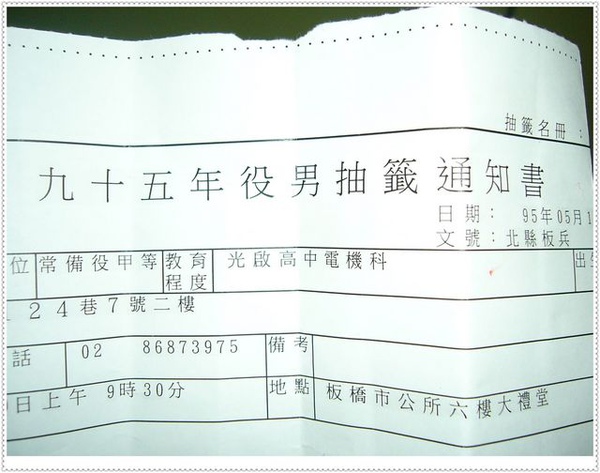 抽籤名冊：
九十五年役男抽籤通知書
日期： 95年05月1
文號：北縣板兵
位 常備役甲等 教育程度 光啟高中電機科 出生
24巷7號二樓
話 02 86873975 備考
日上午 9時30分 地點 板橋市公所六樓大禮堂